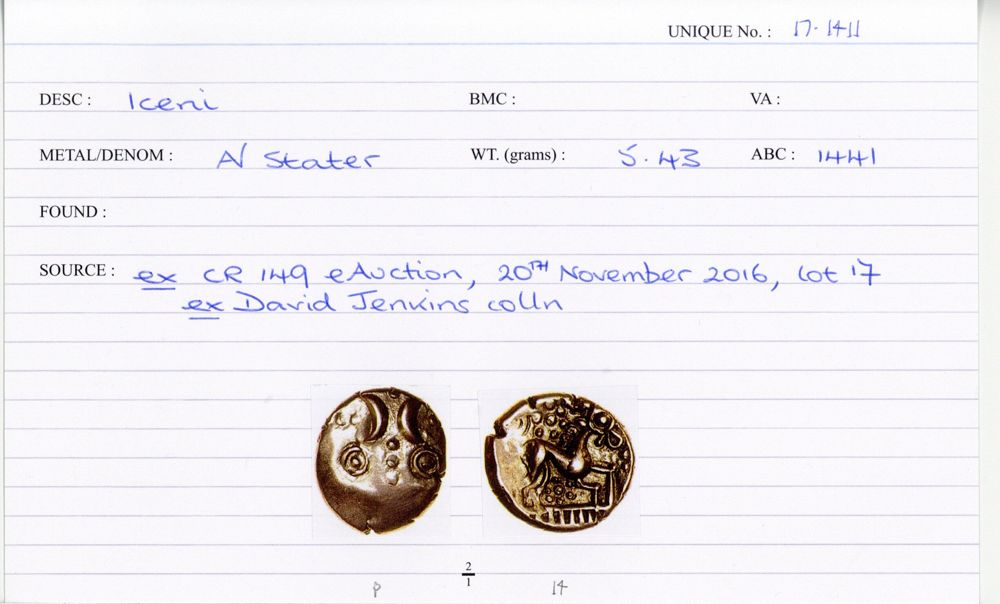 UNIQUE No. : 17.1411
DESC : Iceni BMC : VA :
METAL/DENOM : AV Stater WT. (grams) : 5.43 ABC : 1441
FOUND :
SOURCE : ex CR 149 eAuction, 20TH November 2016, lot 17
ex David Jenkins colln
2
1
P 14